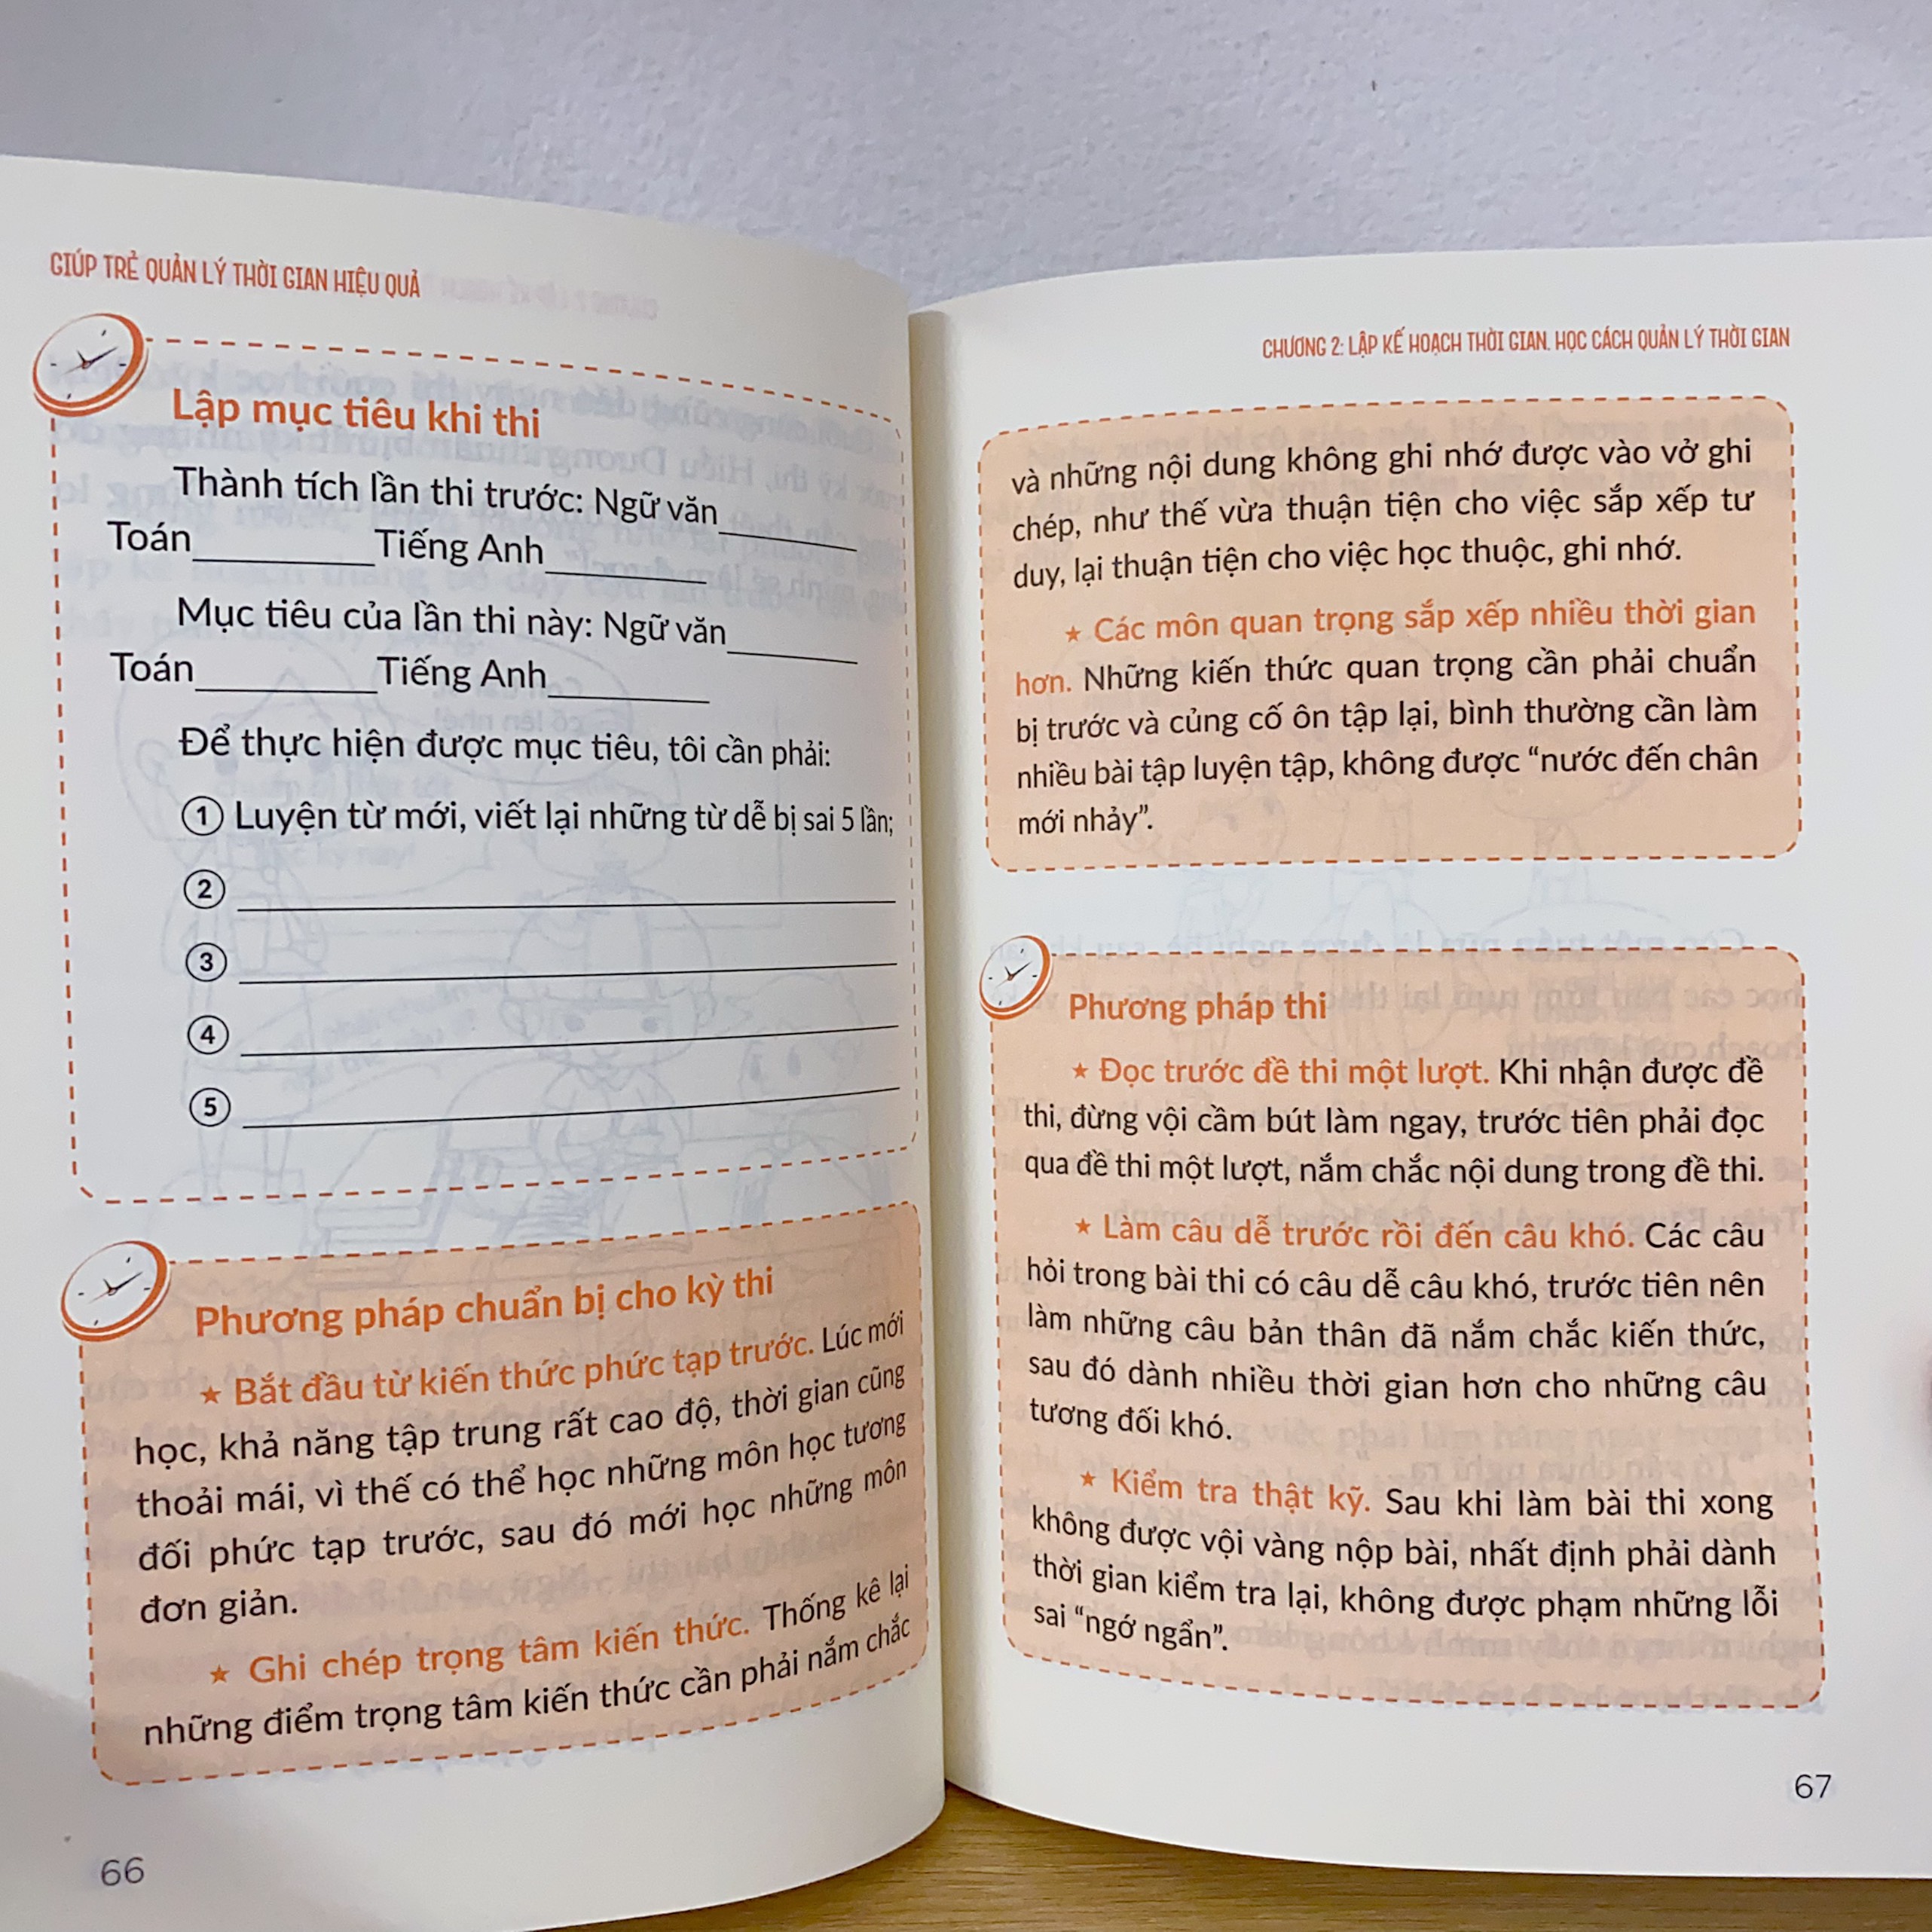 GIÚP TRẺ QUẢN LÝ THỜI GIAN HIỆU QUẢ
Lập mục tiêu khi thi
Thành tích lần thi trước: Ngữ văn
Toán Tiếng Anh
Mục tiêu của lần thi này: Ngữ văn
Toán Tiếng Anh
Để thực hiện được mục tiêu, tôi cần phải:
① Luyện từ mới, viết lại những từ dễ bị sai 5 lần;
②
③
④
⑤
Phương pháp chuẩn bị cho kỳ thi
★ Bắt đầu từ kiến thức phức tạp trước. Lúc mới
học, khả năng tập trung rất cao độ, thời gian cũng
thoải mái, vì thế có thể học những môn học tương
đối phức tạp trước, sau đó mới học những môn
đơn giản.
★ Ghi chép trọng tâm kiến thức. Thống kê lại
những điểm trọng tâm kiến thức cần phải nắm chắc
66
CHƯƠNG 2: LẬP KẾ HOẠCH THỜI GIAN. HỌC CÁCH QUẢN LÝ THỜI GIAN
và những nội dung không ghi nhớ được vào vở ghi
chép, như thế vừa thuận tiện cho việc sắp xếp tư
duy, lại thuận tiện cho việc học thuộc, ghi nhớ.
★ Các môn quan trọng sắp xếp nhiều thời gian
hơn. Những kiến thức quan trọng cần phải chuẩn
bị trước và củng cố ôn tập lại, bình thường cần làm
nhiều bài tập luyện tập, không được “nước đến chân
mới nhảy”.
Phương pháp thi
★ Đọc trước đề thi một lượt. Khi nhận được đề
thi, đừng vội cầm bút làm ngay, trước tiên phải đọc
qua đề thi một lượt, nắm chắc nội dung trong đề thi.
★ Làm câu dễ trước rồi đến câu khó. Các câu
hỏi trong bài thi có câu dễ câu khó, trước tiên nên
làm những câu bản thân đã nắm chắc kiến thức,
sau đó dành nhiều thời gian hơn cho những câu
tương đối khó.
★ Kiểm tra thật kỹ. Sau khi làm bài thi xong
không được vội vàng nộp bài, nhất định phải dành
thời gian kiểm tra lại, không được phạm những lỗi
sai “ngớ ngẩn”.
67